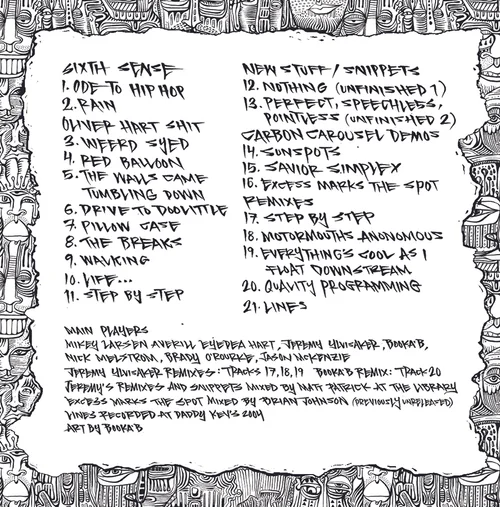 SIXTH SENSE
1. ODE TO HIP HOP
2. RAIN
OLIVER HART SHIT
3. WEERD SYED
4. RED BALLOON
5. THE WALLS CAME
TUMBLING DOWN
6. DRIVE TO DOOLITTLE
7. PILLOW CASE
8. THE BREAKS
9. WALKING
10. LIFE...
11. STEP BY STEP
NEW STUFF / SNIPPETS
12. NOTHING (UNFINISHED 1)
13. PERFECT, SPEECHLESS,
POINTLESS (UNFINISHED 2)
CARBON CAROUSEL DEMOS
14. SUNSPOTS
15. SAVIOR SIMPLEX
16. EXCESS MARKS THE SPOT
REMIXES
17. STEP BY STEP
18. MOTORMOUTHS ANONYMOUS
19. EVERYTHING'S COOL AS I
FLOAT DOWNSTREAM
20. QUALITY PROGRAMMING
21. LINES
MAIN PLAYERS
MIKEY LARSEN AVERILL EYEDEA HART, JEREMY YLVISAKER, BOOKA'B,
NICK WELSTROM, BRADY O'ROURKE, JASON MCKENZIE
JEREMY YLVISAKER REMIXES: TRACKS 17,18,19 BOOKA'B REMIX: TRACK 20
JEREMY'S REMIXES AND SNIPPETS MIXED BY MATT PATRICK AT THE LIBRARY
EXCESS MARKS THE SPOT MIXED BY BRIAN JOHNSON (PREVIOUSLY UNRELEASED)
LINES RECORDED AT DADDY KEV'S 2004
ART BY BOOKA'B